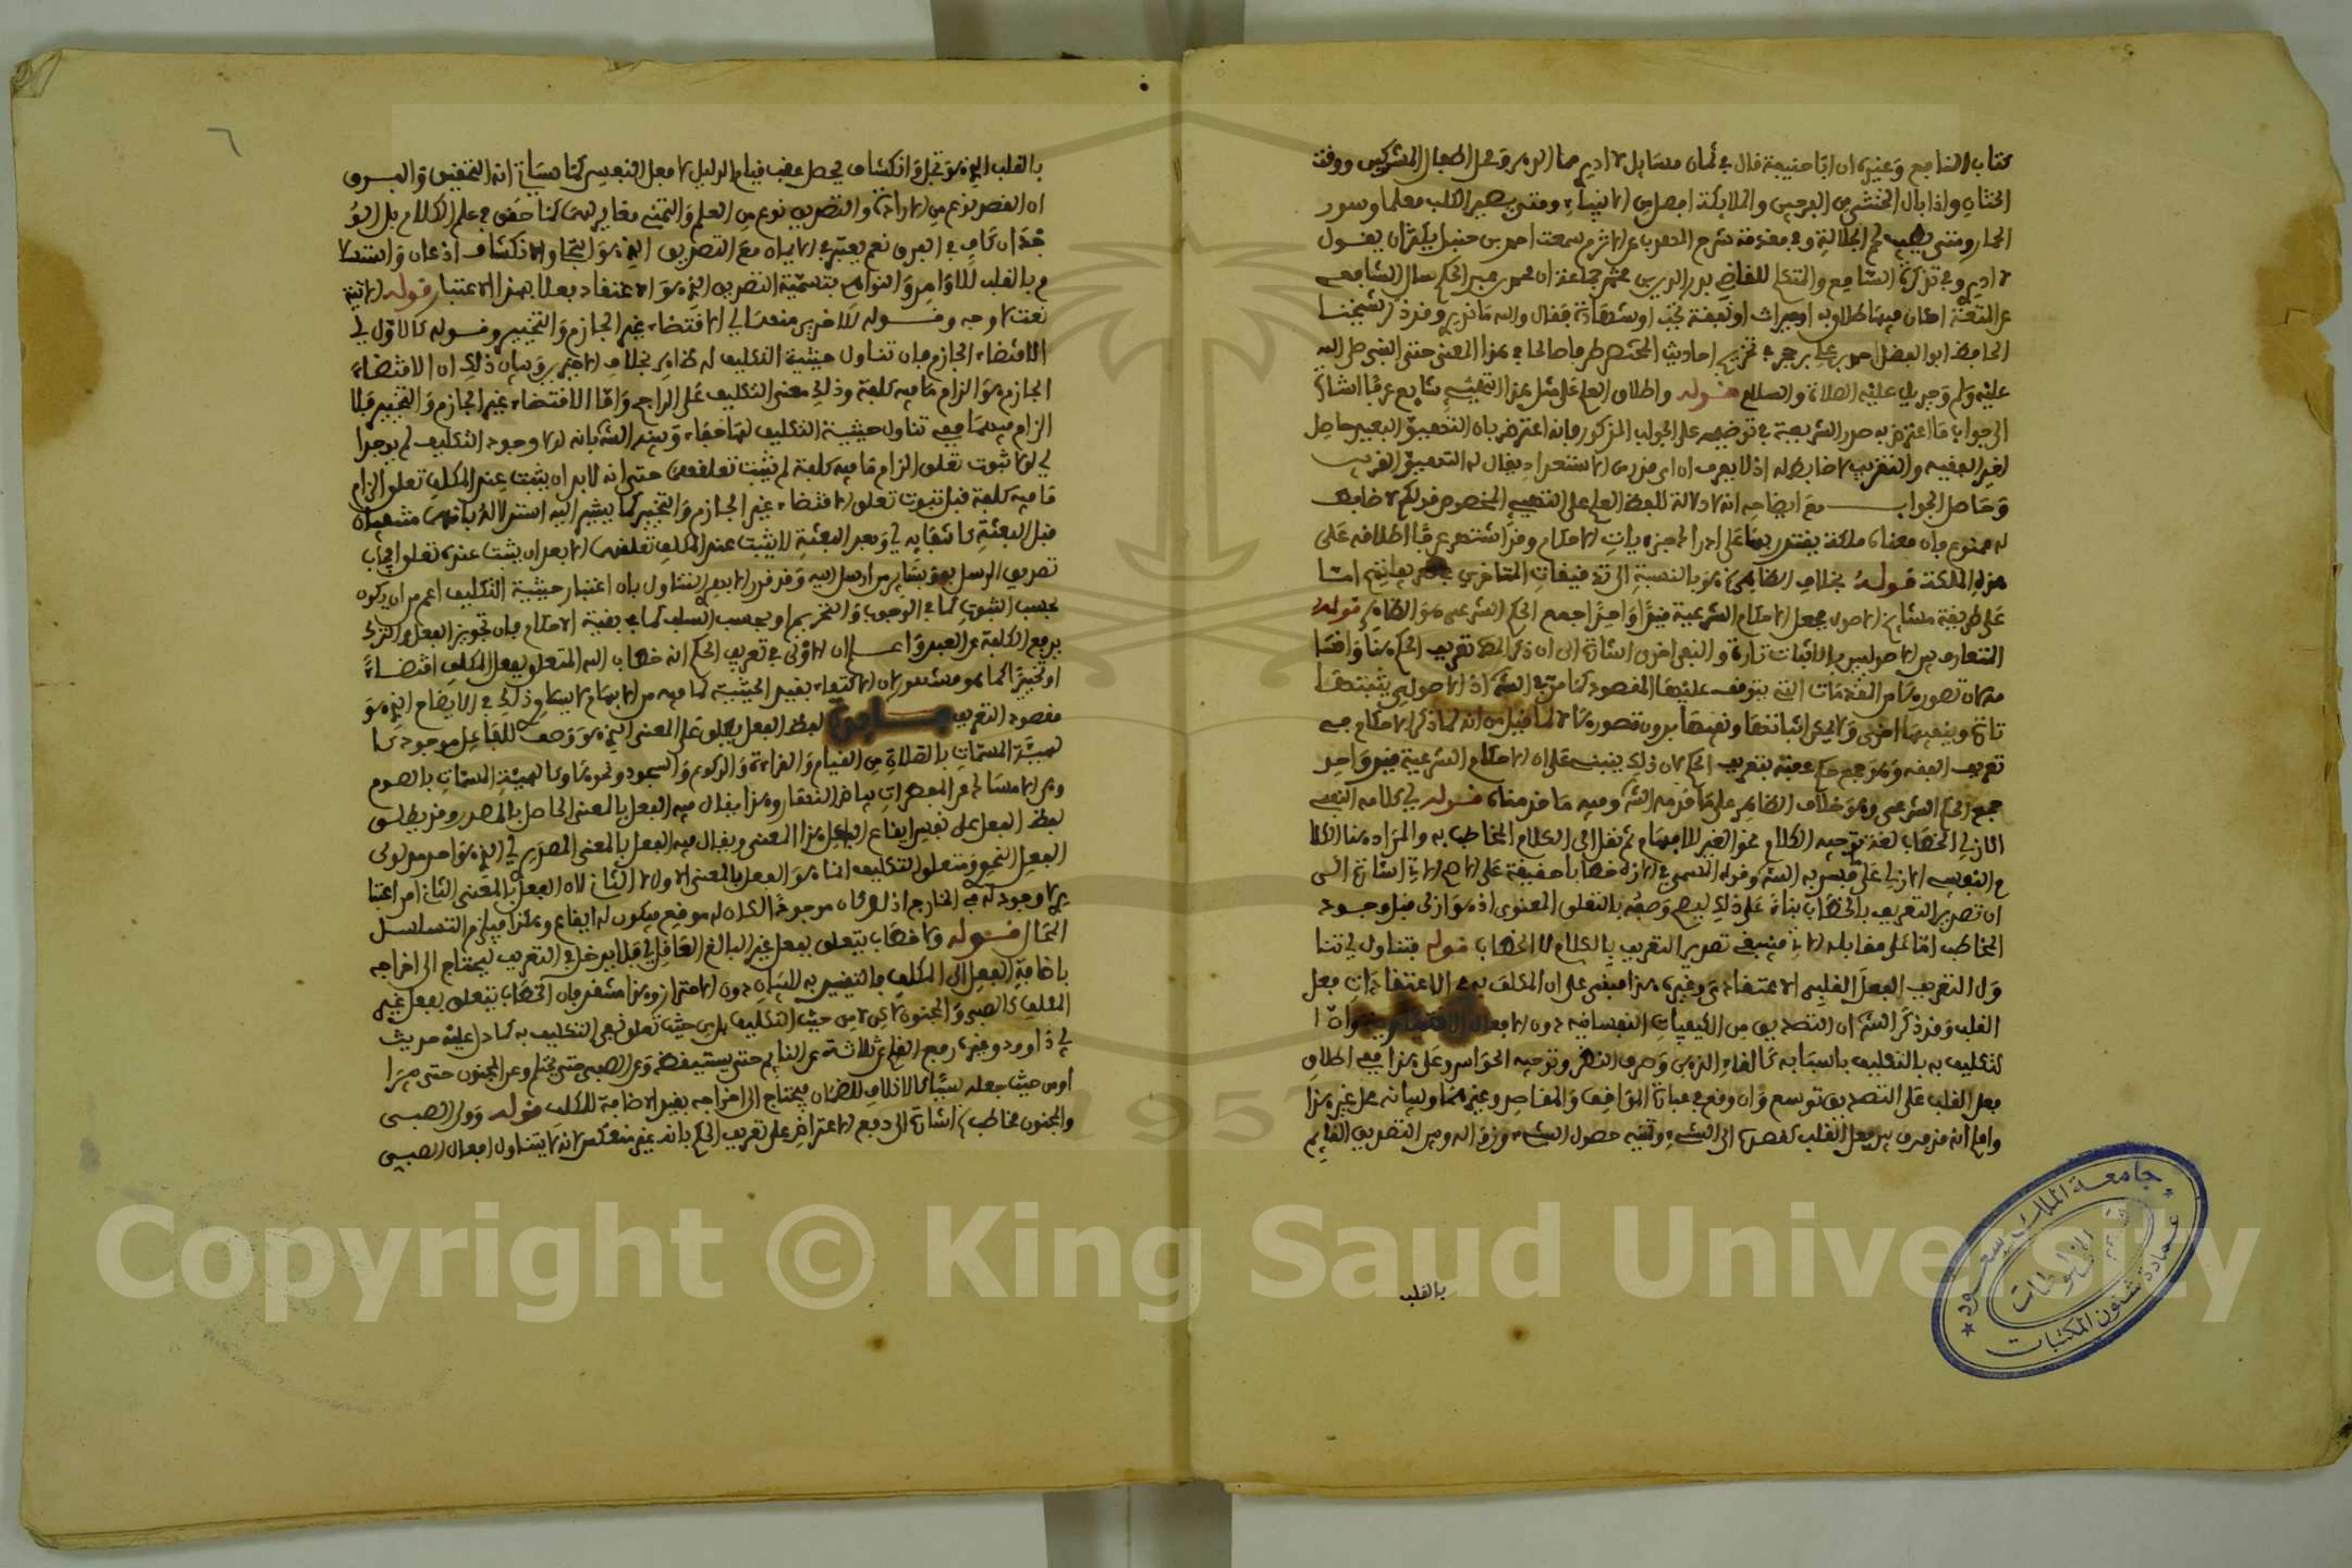 كتاب النافع وغيره ان ابا حنيفة قال في ثمان مسايل لا ادري ما الدهر ومحل اطفال المشركين ووقت
الختان واذا بال الخنثى من الفرجين والملايكة افضل من الانبياء ومتى يصير الكلب معلما وسور
الحمار ومتى يطيب لحم الجلالة وفي مقدمة شرح المهذب عن الاثرم سمعت احمد بن حنبل يكثر ان يقول
لا ادري وفي تذكرة السامع والمتكلم للقاضي بدر الدين بن جماعة ان محمد بن عبد الحكم سال الشافعي
عن المتعة اكان فيها طلاق او ميراث او نفقة تجب او شهادة فقال والله ما ندري وقد ذكر شيخنا
الحافظ ابو الفضل احمد بن علي بن حجر في تخريج احاديث المختصر طرفا صالحا في هذا المعنى حتى النبي صلى الله
عليه وسلم وجبريل عليه الصلاة والسلام قوله واطلاق العلم على مثل هذا التهيئ شايع عرفا اشارة
الى جواب ما اعترض به صدر الشريعة في توضيحه على الجواب المذكور فانه اعترض بان التهيؤ البعيد حاصل
لغير الفقيه والقريب لا ضابط له اذ لا يعرف ان اي قدر من الاستعداد يقال له التهيؤ القريب
وحاصل الجواب مع ايضاحه انه لا دلالة للفظ العلم على التهيئ المخصوص قولكم لا ضابط
له ممنوع فان معناه ملكة يقتدر بها على ادراك جزءيات الاحكام وقد اشتهر عرفا اطلاقه على
هذه الملكة قوله بخلاف الظاهر هو بالنسبة الى تدقيقات المتاخرين في تعاريفهم اما
على طريقة مشايخ الاصول بجعل الاحكام الشرعية قيدا واحدا جمع الحكم الشرعي هو الظاهر قوله
المتعارف بين الاصوليين بالاثبات تارة والنفي اخرى اشارة الى ان ذكر المص تعريف الحكم هنا واقسا
مه لان تصوره من المقدمات التي يتوقف عليها المقصود كما مر في الش اذ الاصولي يثبتها
تارة وينفيها اخرى ولا يمكن اثباتها ونفيها بدون تصورها لا لما قيل من انه لما ذكر الاحكام في
تعريف الفقه وهو جمع حكم عقبه بتعريف الحكم لان ذلك ينبني على ان الاحكام الشرعية قيد واحد
جمع الحكم الشرعي وهو خلاف الظاهر على ما قدمه الش وفيه ما قدمناه قوله اي كلامه النفسي
الازلي الخطاب لغة توجيه الكلام نحو الغير للافهام ثم نقل الى الكلام المخاطب به والمراد هنا الكلا
م النفسي الازلي على ما فسر به الش وقوله المسمى في الازل خطابا حقيقة على الاصح الاتي اشارة الى
ان تصدير التعريف بالخطاب بناء على ذلك ليصح وصفه بالتعلق المعنوي اذ هو ازلي قبل وجود
المخاطب اما على مقابله الاتي فينبغي تصدير التعريف بالكلام لا الخطاب قوله فتناول اي تنا
ول التعريف الفعل القلبي الاعتقادي وغيره هذا مبني على ان المكلف به في الاعتقادات فعل
القلب وقد ذكر الش ان التصديق من الكيفيات النفسانية دون الافعال الاختيارية وان ا
لتكليف به بالتكليف باسبابه كالقاء الذهن وصرف النظر وتوجيه الحواس وعلى هذا ففي اطلاق
فعل القلب على التصديق توسع وان وقع في عبارة المواقف والمقاصد وغيرهما وبيانه محل غير هذا
واعلم انه قد فرق بين فعل القلب كقصده الى الشيء وتمنيه حصول الشيء وزواله وبين التصديق القايم
بالقلب
بالقلب الذي هو تجل وانكشاف يحصل عقب قيام الدليل لا فعل النفس كما سياتي انه التحقيق والفرق
ان القصد نوع من الارادة والتصديق نوع من العلم والتمني مغاير لهما كما حقق في علم الكلام بل الو
جدان كاف في الفرق نعم يعتبر في الايمان مع التصديق الذي هو التجلي والانكشاف اذعان واستسلا
م بالقلب للاوامر والنواهي بتسمية التصديق الذي هو الاعتقاد فعلا بهذا الاعتبار قوله
الاقتضاء الجازم فان تناول حيثية التكليف له ظاهر بخلاف الاخيرين وبيان ذلك ان الاقتضاء
الجازم هو الزام ما فيه كلفة وذلك معنى التكليف على الراجح واما الاقتضاء غير الجازم والتخيير فلا
الزام فيهما ففي تناول حيثية التكليف لهما خفاء وبينه الش بانه لولا وجود التكليف لم يوجدا
اي لولا ثبوت تعلق الزام ما فيه كلفة لم يثبت تعلقهما حتى انه لا بد ان يثبت عند المكلف تعلق الزام
ما فيه كلفة قبل ثبوت تعلق الاقتضاء غير الجازم والتخيير كما يشير اليه استدلاله بانهما منتفيان
قبل البعثة كانتفايه اي وبعد البعثة لا يثبت عند المكلف تعلقهما الا بعد ان يثبت عنده تعلق ايجاب
تصديق الرسل
بحسب الثبوت كما في الوجوب والتحريم او بحسب السلب كما في بقية الاحكام فان تجويز الفعل والترك
يرفع الكلفة عن العبد واعلم ان الاولى في تعريف الحكم انه خطاب الله المتعلق بفعل المكلف اقتضاء
او تخييرا كما هو مشهور لان الاكتفاء بقيد الحيثية لما فيه من الابهام لا يساوي ذلك في الايضاح الذي هو
مقصود التعريف لفظ الفعل يطلق على المعنى الذي هو وصف للفاعل موجود كا
لهيئة المسماة بالصلاة من القيام والقراءة والركوع والسجود ونحوها وكالهيئة المسماة بالصوم
وهي الامساك عن المفطرات بياض النهار وهذا يقال فيه الفعل بالمعنى الحاصل بالمصدر وقد يطلق
لفظ الفعل على نفس ايقاع الفاعل هذا المعنى ويقال فيه الفعل بالمعنى المصدري اي الذي هو احد مدلولي
الفعل النحوي ومتعلق التكليف انما هو الفعل بالمعنى الاول لا الثاني لان الفعل بالمعنى الثاني امر اعتبا
ري لا وجود له في الخارج اذ لو كان موجودا لكان له موقع فيكون له ايقاع وهكذا فيلزم التسلسل
المحال قوله ولا خطاب يتعلق بفعل غير البالغ العاقل اي فلا يدخل في التعريف ليحتاج الى اخراجه
باضافة الفعل الى المكلف فالتقييد به للبيان دون الاحتراز وهذا مشعر بان الخطاب يتعلق بفعل غير
المكلف كالصبي والمجنون لكن لا من حيث التكليف بل من حيث تعلق نفي التكليف به كما دل عليه حديث
ابي داود وغيره رفع القلم عن ثلاثة عن النايم حتى يستيقظ وعن الصبي حتى يحتلم وعن المجنون حتى يبرا
او من حيث جعله سببا كالاتلاف للضمان فيحتاج الى اخراجه بقيد الاضافة للمكلف قوله وولي الصبي
والمجنون مخاطب اشارة الى دفع الاعتراض على تعريف الحكم بانه غير منعكس لانه لا يتناول افعال الصبي
جامعة الملك سعود
عمادة شئون المكتبات
قسم المخطوطات
1957
Copyright © King Saud University